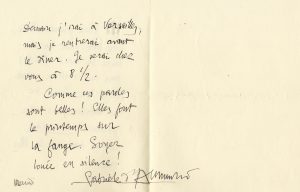 Demain j'irai à Versailles,
mais je rentrerai avant
le dîner. Je serai chez
vous à 8 1/2.
Comme ces paroles
sont belles! Elles font
le printemps sur
la fange. Soyez
louée en silence!
Gabriele d'Annunzio